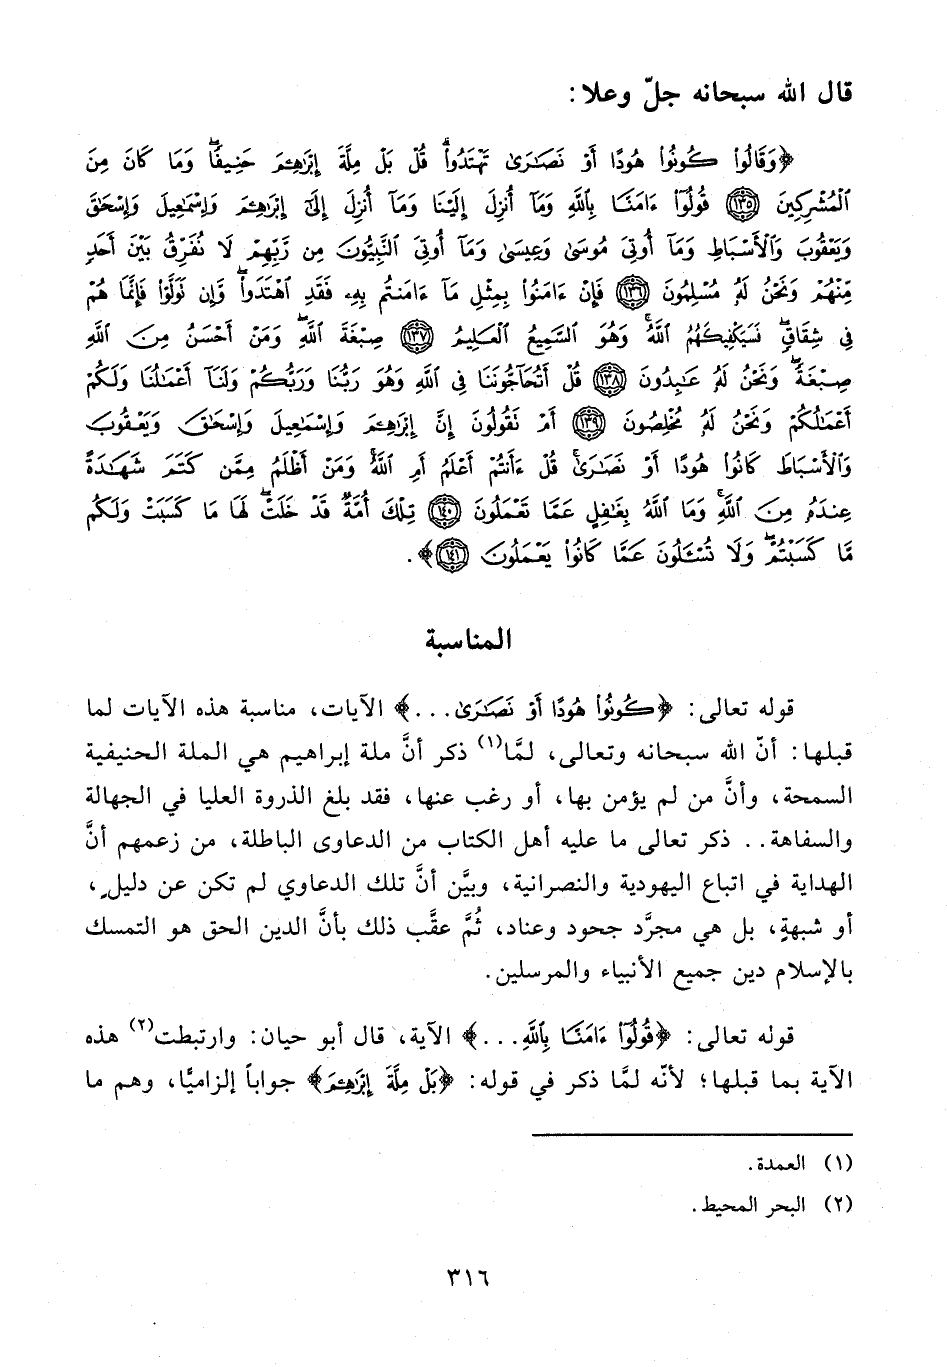 قال الله سبحانه جلّ وعلا:
﴿وَقَالُوا۟ كُونُوا۟ هُودًا أَوْ نَصَـٰرَىٰ تَهْتَدُوا۟ۗ قُلْ بَلْ مِلَّةَ إِبْرَٰهِـۧمَ حَنِيفًاۖ وَمَا كَانَ مِنَ
ٱلْمُشْرِكِينَ ﴿١٣٥﴾ قُولُوٓا۟ ءَامَنَّا بِٱللَّهِ وَمَآ أُنزِلَ إِلَيْنَا وَمَآ أُنزِلَ إِلَىٰٓ إِبْرَٰهِـۧمَ وَإِسْمَـٰعِيلَ وَإِسْحَـٰقَ
وَيَعْقُوبَ وَٱلْأَسْبَاطِ وَمَآ أُوتِىَ مُوسَىٰ وَعِيسَىٰ وَمَآ أُوتِىَ ٱلنَّبِيُّونَ مِن رَّبِّهِمْ لَا نُفَرِّقُ بَيْنَ أَحَدٍ
مِّنْهُمْ وَنَحْنُ لَهُۥ مُسْلِمُونَ ﴿١٣٦﴾ فَإِنْ ءَامَنُوا۟ بِمِثْلِ مَآ ءَامَنتُم بِهِۦ فَقَدِ ٱهْتَدَوا۟ۖ وَّإِن تَوَلَّوْا۟ فَإِنَّمَا هُمْ
فِى شِقَاقٍۖ فَسَيَكْفِيكَهُمُ ٱللَّهُۚ وَهُوَ ٱلسَّمِيعُ ٱلْعَلِيمُ ﴿١٣٧﴾ صِبْغَةَ ٱللَّهِۖ وَمَنْ أَحْسَنُ مِنَ ٱللَّهِ
صِبْغَةًۖ وَنَحْنُ لَهُۥ عَـٰبِدُونَ ﴿١٣٨﴾ قُلْ أَتُحَآجُّونَنَا فِى ٱللَّهِ وَهُوَ رَبُّنَا وَرَبُّكُمْ وَلَنَآ أَعْمَـٰلُنَا وَلَكُمْ
أَعْمَـٰلُكُمْ وَنَحْنُ لَهُۥ مُخْلِصُونَ ﴿١٣٩﴾ أَمْ تَقُولُونَ إِنَّ إِبْرَٰهِـۧمَ وَإِسْمَـٰعِيلَ وَإِسْحَـٰقَ وَيَعْقُوبَ
وَٱلْأَسْبَاطَ كَانُوا۟ هُودًا أَوْ نَصَـٰرَىٰۗ قُلْ ءَأَنتُمْ أَعْلَمُ أَمِ ٱللَّهُۗ وَمَنْ أَظْلَمُ مِمَّن كَتَمَ شَهَـٰدَةً
عِندَهُۥ مِنَ ٱللَّهِۗ وَمَا ٱللَّهُ بِغَـٰفِلٍ عَمَّا تَعْمَلُونَ ﴿١٤٠﴾ تِلْكَ أُمَّةٌ قَدْ خَلَتْۖ لَهَا مَا كَسَبَتْ وَلَكُم
مَّا كَسَبْتُمْۖ وَلَا تُسْـَٔلُونَ عَمَّا كَانُوا۟ يَعْمَلُونَ ﴿١٤١﴾﴾.
المناسبة
قوله تعالى: ﴿كُونُوا۟ هُودًا أَوْ نَصَـٰرَىٰ...﴾ الآيات، مناسبة هذه الآيات لما
قبلها: أنّ الله سبحانه وتعالى، لمَّا(١) ذكر أنَّ ملة إبراهيم هي الملة الحنيفية
السمحة، وأنَّ من لم يؤمن بها، أو رغب عنها، فقد بلغ الذروة العليا في الجهالة
والسفاهة.. ذكر تعالى ما عليه أهل الكتاب من الدعاوى الباطلة، من زعمهم أنَّ
الهداية في اتباع اليهودية والنصرانية، وبيَّن أنَّ تلك الدعاوي لم تكن عن دليلٍ،
أو شبهةٍ، بل هي مجرَّد جحود وعناد، ثُمَّ عقَّب ذلك بأنَّ الدين الحق هو التمسك
بالإسلام دين جميع الأنبياء والمرسلين.
قوله تعالى: ﴿قُولُوٓا۟ ءَامَنَّا بِٱللَّهِ...﴾ الآية، قال أبو حيان: وارتبطت(٢) هذه
الآية بما قبلها؛ لأنّه لمَّا ذكر في قوله: ﴿بَلْ مِلَّةَ إِبْرَٰهِـۧمَ﴾ جواباً إلزاميًّا، وهم ما
(١) العمدة.
(٢) البحر المحيط.
٣١٦